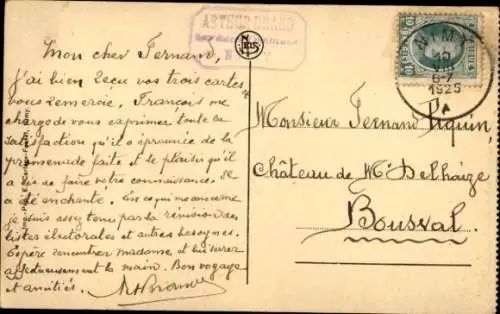 ARTHUR
N T
NIMY
10
6-7
1925
Mon cher Fernand,
J'ai bien reçu vos trois cartes
vous remercie. François me
charge de vous exprimer toute la
satisfaction qu'il a éprouvée de la
promenade faite et le plaisir qu'il
a eu de faire votre connaissance. Il
a été enchanté. En ce qui me concerne
je suis assez tenu par la révision des
listes électorales et autres besognes.
Espère rencontrer madame et lui serrer
affectueusement la main. Bon voyage
et amitiés.
Monsieur Fernand
Château de Mr Delhaize
Bousval.